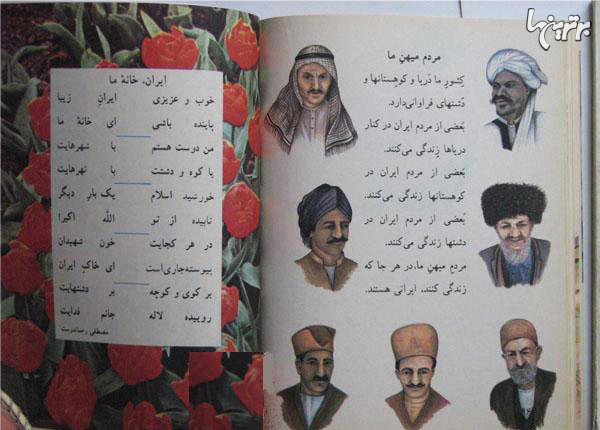 برترینها
مردم میهنِ ما
کشورِ ما دریا و کوهستانها و
دشتهای فراوانی‌دارد.
بعضی از مردم ایران در کنار
دریاها زندگی می‌کنند.
بعضی از مردم ایران در
کوهستانها زندگی می‌کنند.
بعضی از مردم ایران در
دشتها زندگی می‌کنند.
مردمِ میهنِ ما،در هر جا که
زندگی کنند، ایرانی هستند.
ایران، خانهٔ ما
خوب و عزیزی ایرانِ زیبا
پاینده باشی ای خانهٔ ما
من دوست هستم با شهرهایت
با کوه و دشتت با نهرهایت
خورشید اسلام یک بارِ دیگر
تابیده از تو اللّه اکبر!
در هر کجایت خون شهیدان
پیوسته‌جاری‌است ای خاکِ ایران
بر کوی و کوچه بر دشتهایت
روییده لاله جانم فدایت
مصطفی رحماندوست